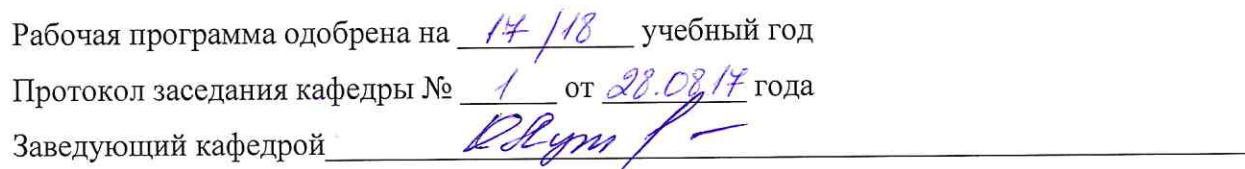 Рабочая программа одобрена на 17/18 учебный год
Протокол заседания кафедры № 1 от 28.08.17 года
Заведующий кафедрой